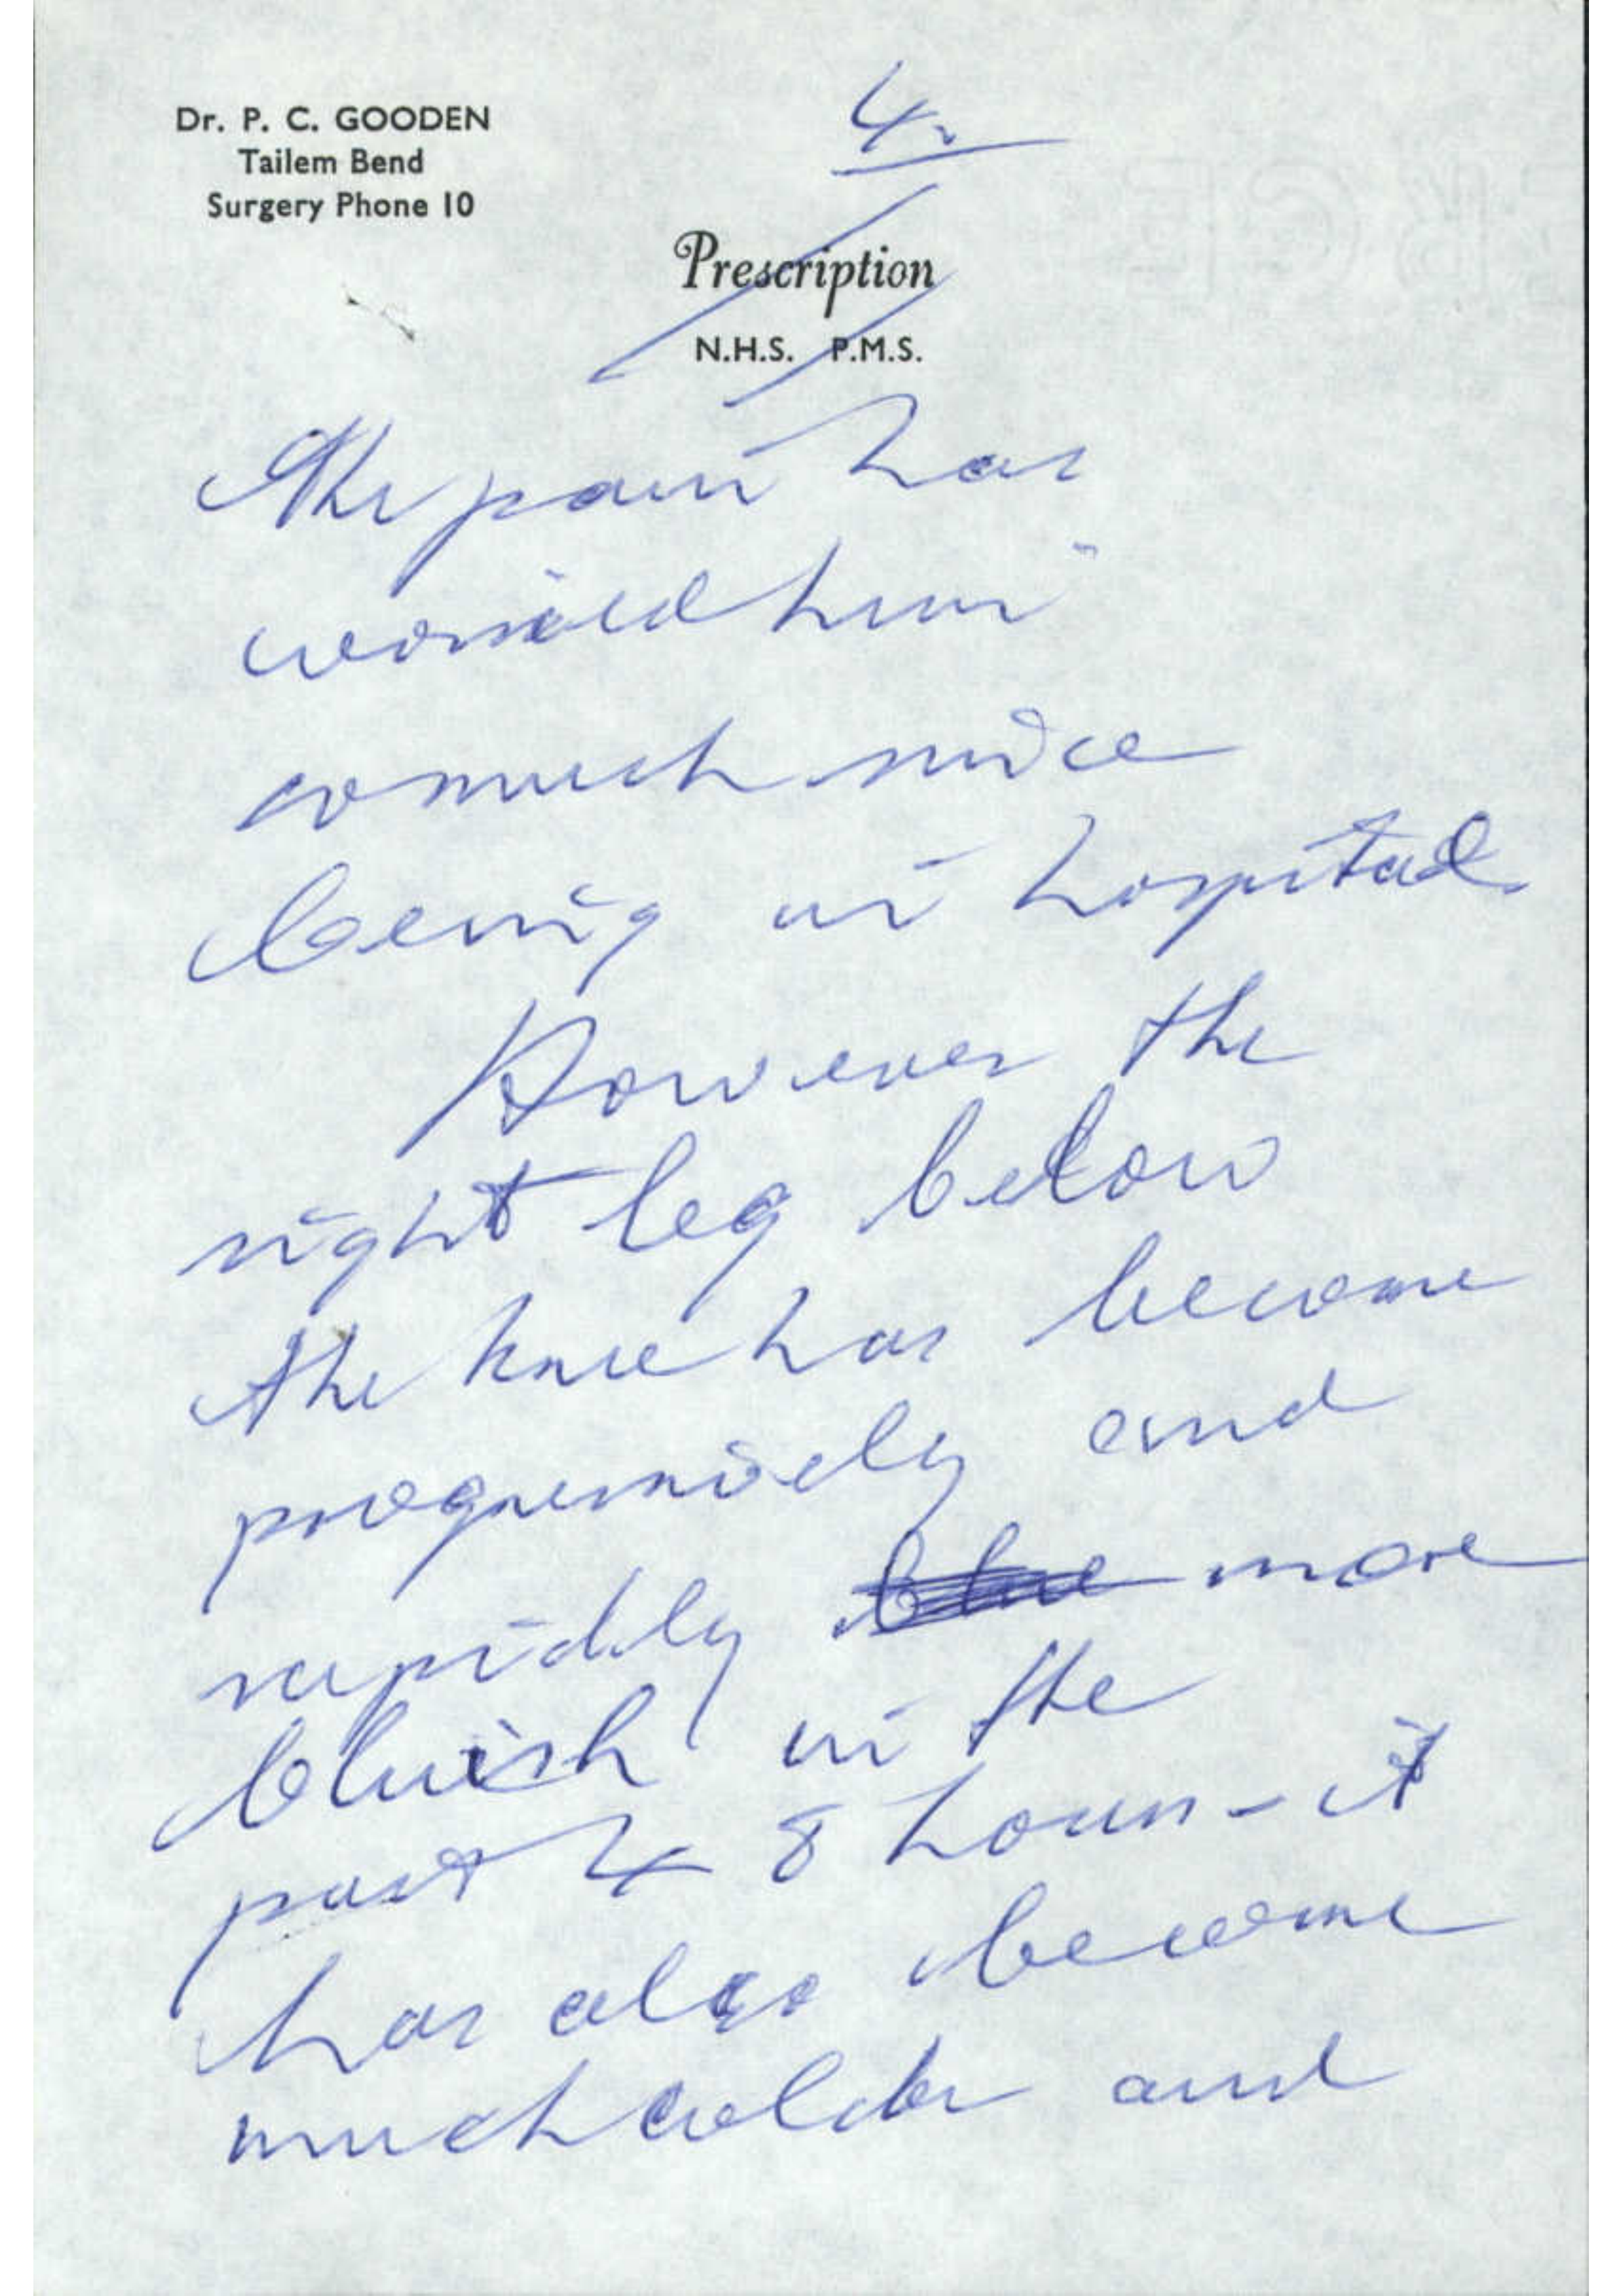 Dr. P. C. GOODEN
Tailem Bend
Surgery Phone 10
4.
Prescription
N.H.S. P.M.S.
The pain has
worried him
so much since
being in hospital.
However the
right leg below
the knee has become
progressively and
rapidly blue more
bluish in the
past 48 hours - it
has also become
much colder and